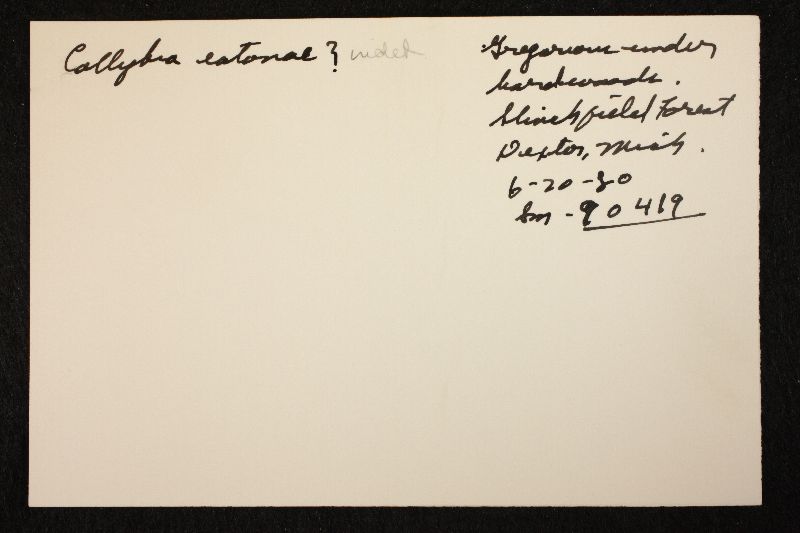 Collybia eatonae? videt
Gregarious under
hardwoods.
Stinchfield Forest
Dexter, Mich.
6-20-80
Sm - 90419